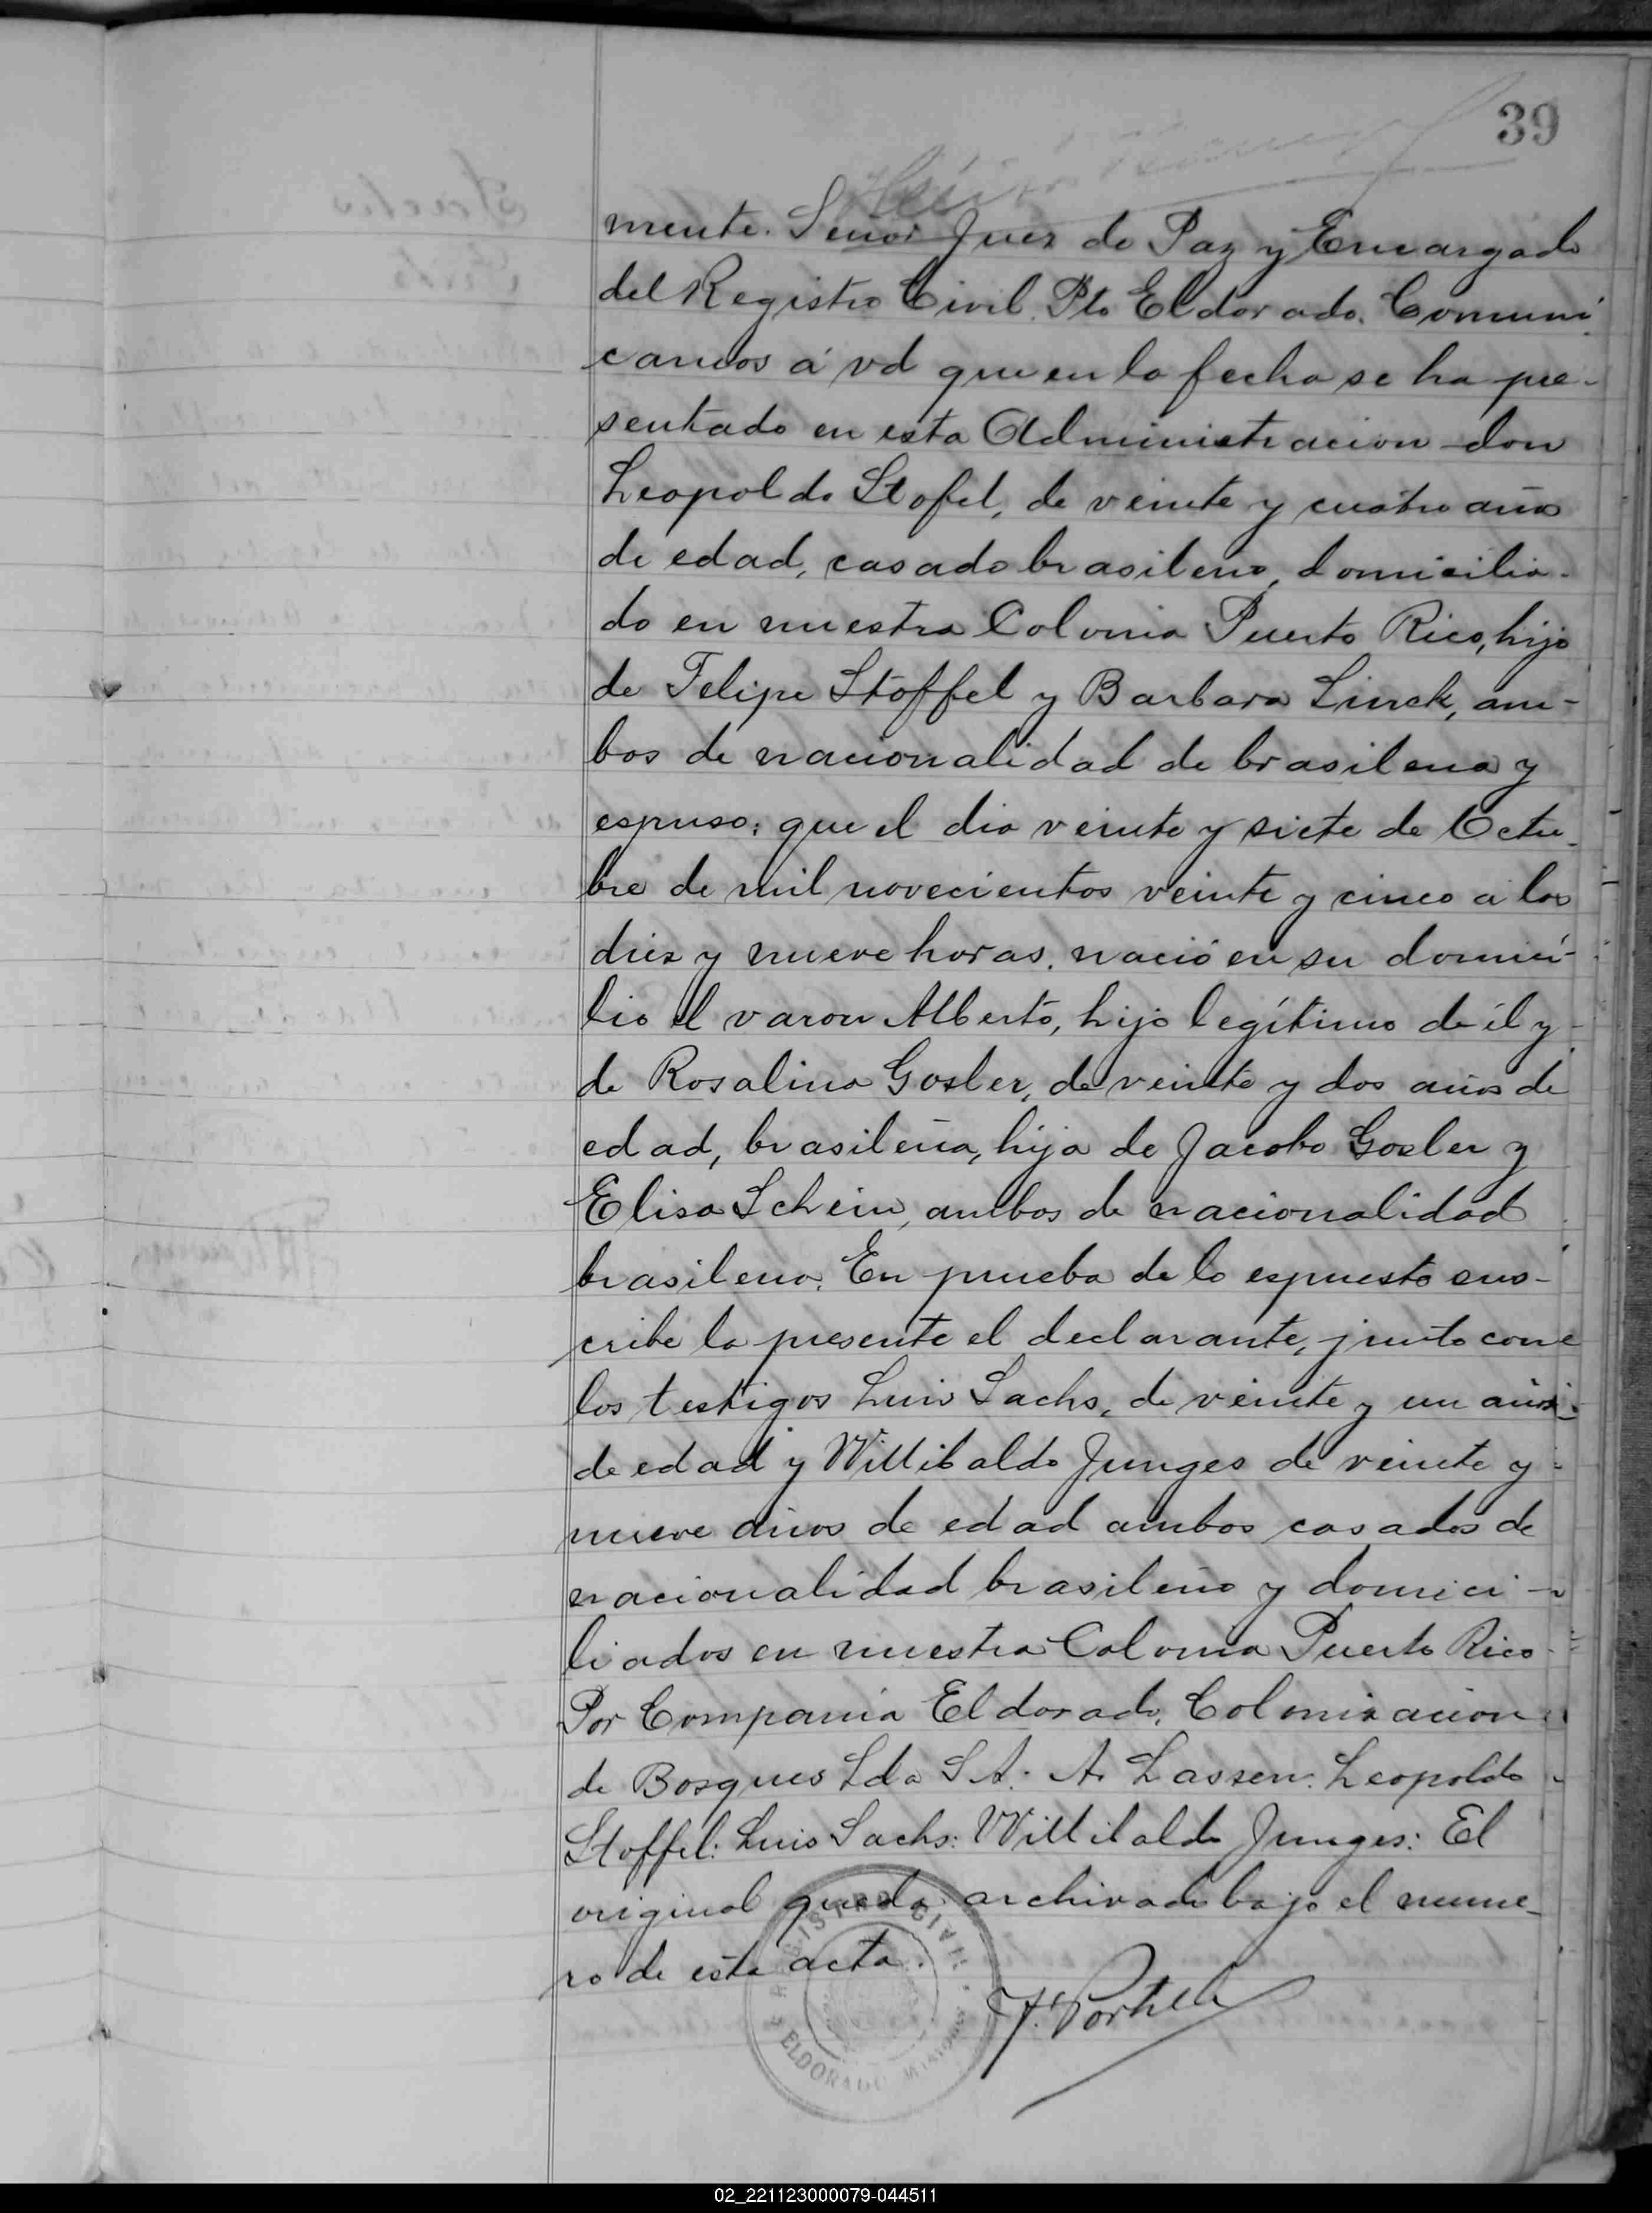 39
mente. Señor Juez de Paz y Encargado
del Registro Civil. Pto Eldorado. Comuni
camos á vd que en la fecha se ha pre-
sentado en esta Administracion don
Leopoldo Stofel, de veinte y cuatro años
de edad, casado brasileno, domicilia-
do en nuestra Colonia Puerto Rico, hijo
de Felipe Stoffel y Barbara Linck, am-
bos de nacionalidad de brasilena y
espuso: que el dia veinte y siete de Octu-
bre de mil novecientos veinte y cinco a las
diez y nueve horas. nació en su domici-
lio el varon Alberto, hijo legítimo de él y
de Rosalina Gosler, de veinte y dos años de
edad, brasileña, hija de Jacobo Gosler y
Elisa Schein, ambos de nacionalidad
brasilena. En prueba de lo espuesto sus-
cribe la presente el declarante, junto con
los testigos Luis Sachs, de veinte y un años
de edad y Willibaldo Junges de veinte y
nueve años de edad ambos casados de
nacionalidad brasileño y domici-
liados en nuestra Colonia Puerto Rico
Por Compania Eldorado, Colonizacion
de Bosques Lda S A. A. Lassen. Leopoldo
Stoffel: Luis Sachs: Willibaldo Junges: El
original queda archivado bajo el nume-
ro de esta acta.
REGISTRO CIVIL
ELDORADO MISIONES
02_221123000079-044511